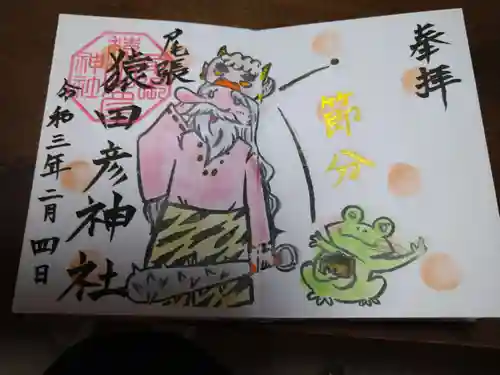 奉拝
節分
尾張
猿田彦神社
令和三年二月四日